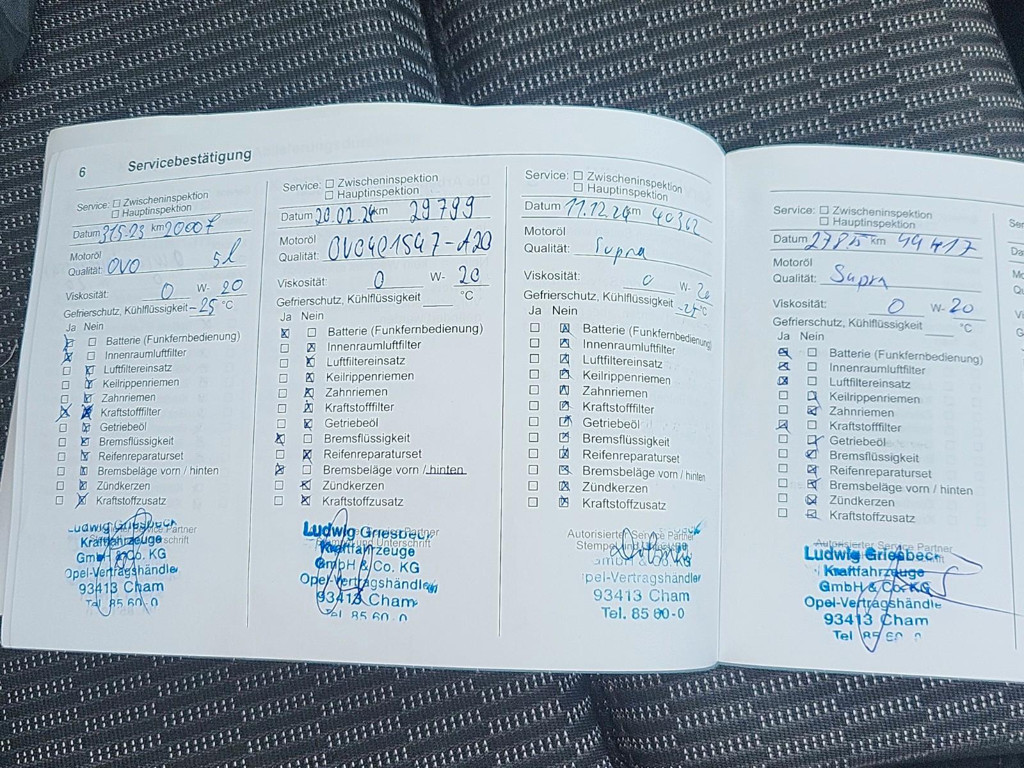 6 Servicebestätigung
Service: ☐ Zwischeninspektion
☐ Hauptinspektion
Datum 31.5.23 km 20007
Motoröl
Qualität: OVO 5l
Viskosität: 0 W- 20
Gefrierschutz, Kühlflüssigkeit -25 °C
Ja Nein
☒ ☐ Batterie (Funkfernbedienung)
☒ ☐ Innenraumluftfilter
☐ ☒ Luftfiltereinsatz
☐ ☒ Keilrippenriemen
☐ ☒ Zahnriemen
☒ ☒ Kraftstofffilter
☐ ☒ Getriebeöl
☐ ☒ Bremsflüssigkeit
☐ ☒ Reifenreparaturset
☐ ☒ Bremsbeläge vorn / hinten
☐ ☒ Zündkerzen
☐ ☒ Kraftstoffzusatz
Ludwig Griesbeck
Kraftfahrzeuge
GmbH & Co. KG
Opel-Vertragshändler
93413 Cham
Tel. 85 60-0
Service: ☐ Zwischeninspektion
☐ Hauptinspektion
Datum 20.02.24 km 29799
Motoröl
Qualität: OVO401547-A20
Viskosität: 0 W- 20
Gefrierschutz, Kühlflüssigkeit °C
Ja Nein
☒ ☐ Batterie (Funkfernbedienung)
☐ ☒ Innenraumluftfilter
☐ ☒ Luftfiltereinsatz
☐ ☒ Keilrippenriemen
☐ ☒ Zahnriemen
☐ ☒ Kraftstofffilter
☐ ☒ Getriebeöl
☒ ☐ Bremsflüssigkeit
☐ ☒ Reifenreparaturset
☒ ☐ Bremsbeläge vorn / hinten
☐ ☒ Zündkerzen
☐ ☒ Kraftstoffzusatz
Ludwig Griesbeck
Kraftfahrzeuge
GmbH & Co. KG
Opel-Vertragshändler
93413 Cham
Tel. 85 60-0
Service: ☐ Zwischeninspektion
☐ Hauptinspektion
Datum 11.12.24 km 40362
Motoröl
Qualität: Supra
Viskosität: 0 W- 20
Gefrierschutz, Kühlflüssigkeit -25 °C
Ja Nein
☐ ☒ Batterie (Funkfernbedienung)
☐ ☒ Innenraumluftfilter
☐ ☒ Luftfiltereinsatz
☐ ☒ Keilrippenriemen
☐ ☒ Zahnriemen
☐ ☒ Kraftstofffilter
☐ ☒ Getriebeöl
☐ ☒ Bremsflüssigkeit
☐ ☒ Reifenreparaturset
☐ ☒ Bremsbeläge vorn / hinten
☐ ☒ Zündkerzen
☐ ☒ Kraftstoffzusatz
Autorisierter Service Partner
GmbH & Co. KG
Opel-Vertragshändler
93413 Cham
Tel. 85 60-0
Service: ☐ Zwischeninspektion
☐ Hauptinspektion
Datum 27.8.25 km 49417
Motoröl
Qualität: Supra
Viskosität: 0 W- 20
Gefrierschutz, Kühlflüssigkeit °C
Ja Nein
☒ ☐ Batterie (Funkfernbedienung)
☒ ☐ Innenraumluftfilter
☒ ☐ Luftfiltereinsatz
☐ ☒ Keilrippenriemen
☐ ☒ Zahnriemen
☒ ☐ Kraftstofffilter
☐ ☒ Getriebeöl
☐ ☒ Bremsflüssigkeit
☐ ☒ Reifenreparaturset
☐ ☒ Bremsbeläge vorn / hinten
☐ ☒ Zündkerzen
☐ ☒ Kraftstoffzusatz
Autorisierter Service Partner
Ludwig Griesbeck
Kraftfahrzeuge
GmbH & Co. KG
Opel-Vertragshändle
93413 Cham
Tel 85 60-0